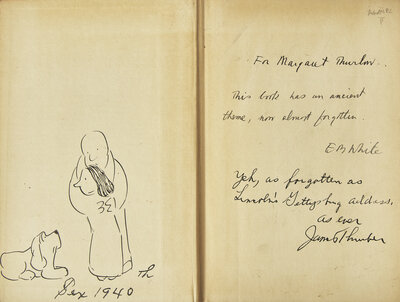 Sex 1940
Th
For Margaret Thurlow.
This book has an ancient
theme, now almost forgotten.
E B White
Yeh, as forgotten as
Lincoln's Gettysburg address.
as ever
James Thurber